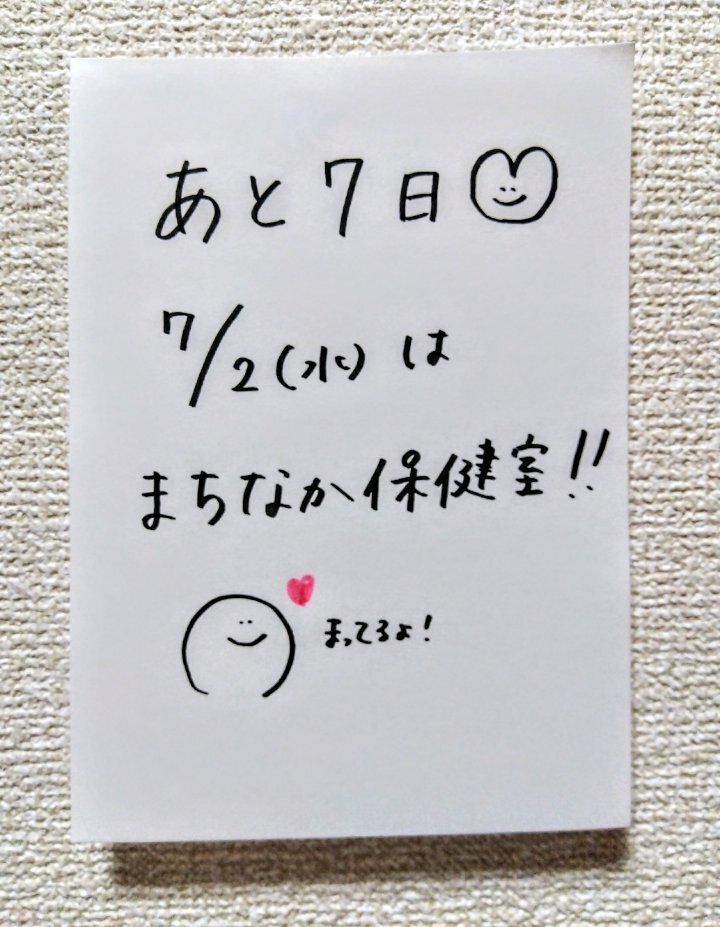 あと7日
7/2(水)は
まちなか保健室!!
まってるよ!